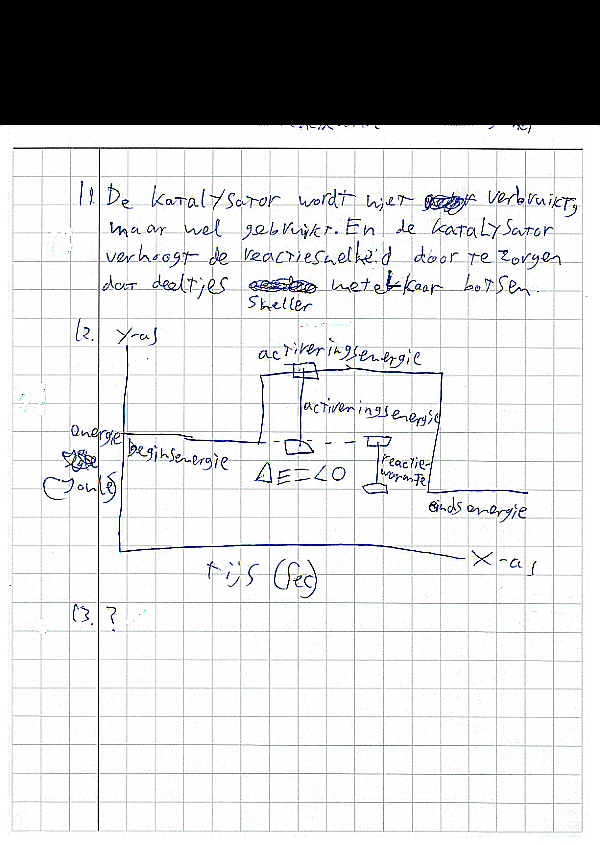 11. De katalysator wordt niet verbruikt,
maar wel gebruikt. En de katalysator
verhoogt de reactiesnelheid door te zorgen
dat deeltjes met elkaar botsen.
sneller
12. Y-as
activeringsenergie
activeringsenergie
energie
beginsenergie
reactie-
warmte
(Joule)
ΔE=<0
einds energie
X-as
tijs (sec)
13. ?